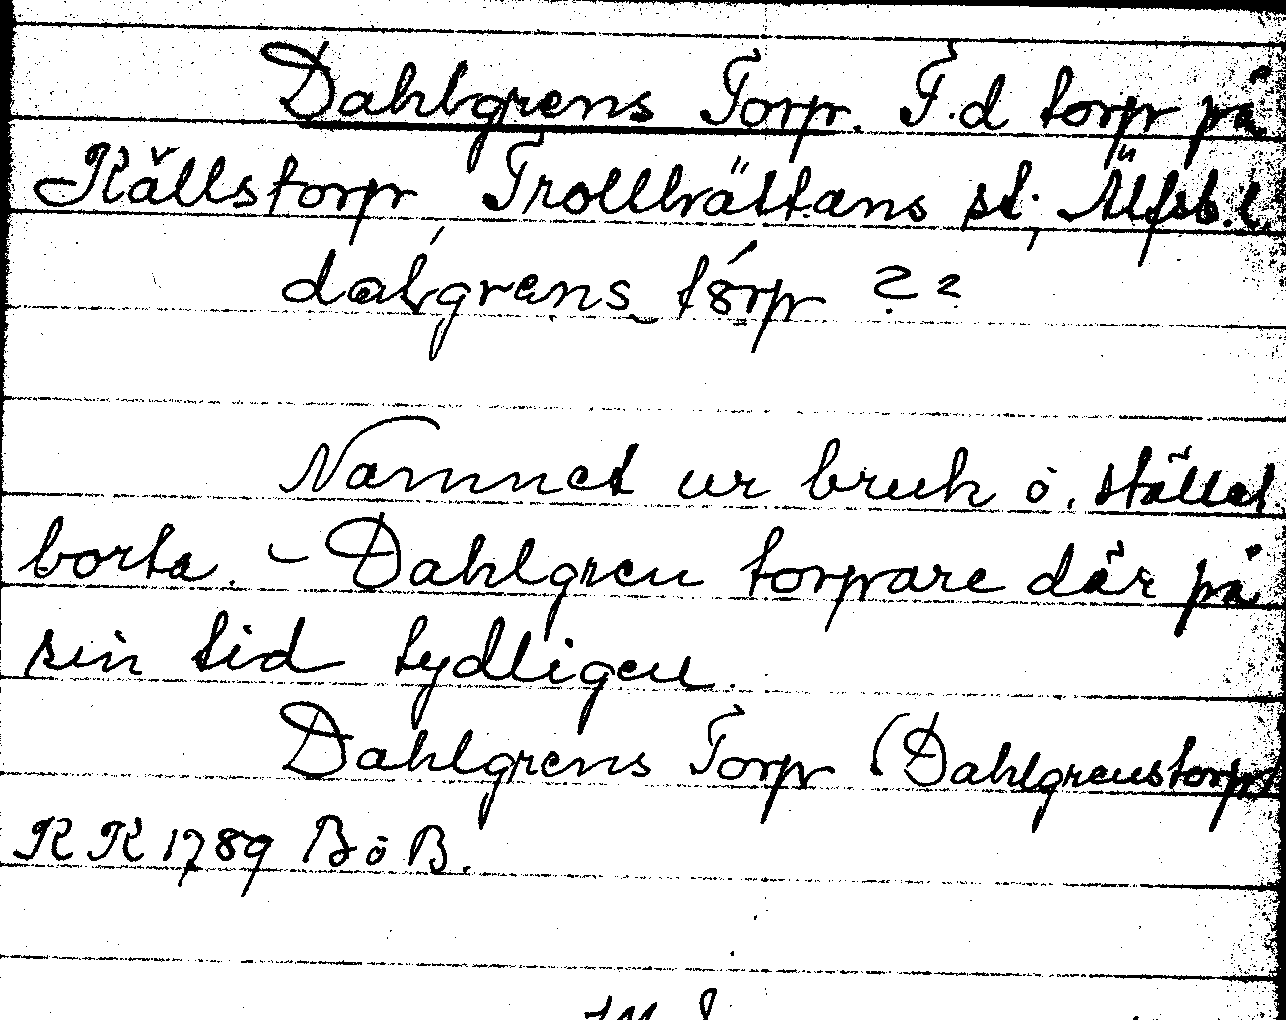 Dahlgrens Torp. F.d torp på
Källstorp Trollhättans st; Älfsb. l.
dalgrens tórp 2 2
Namnet ur bruk o. stället
borta. - Dahlgren torpare där på
sin tid tydligen.
Dahlgrens Torp (Dahlgrenstorp)
KK 1789 B o B.